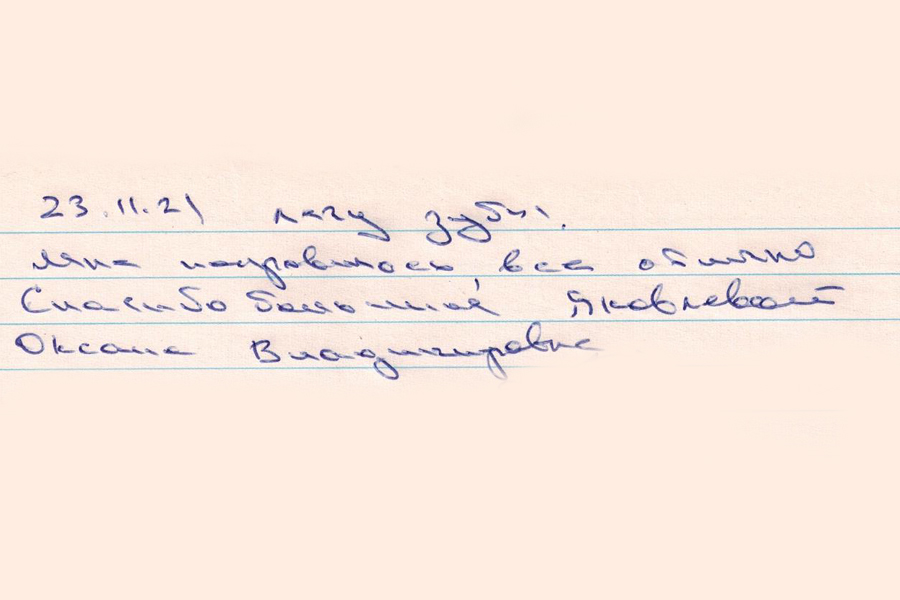 23.11.21 лечу зубы.
Мне понравилось все отлично
Спасибо большое Яковлевой
Оксане Владимировне